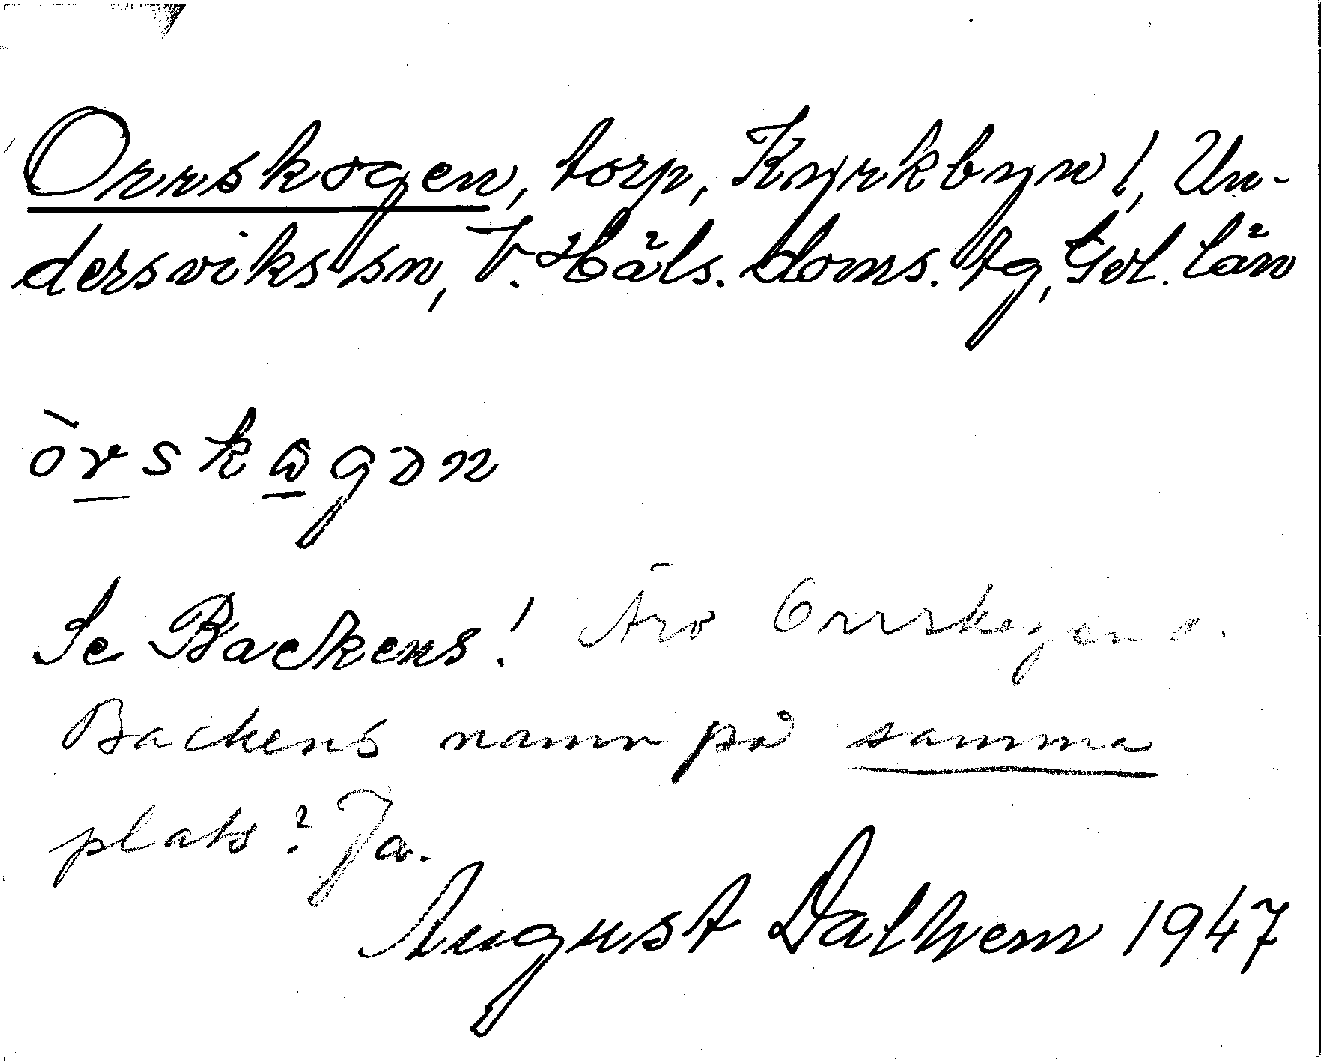 Orrskogen, torp, Kyrkbyn 1, Un-
dersviks sn, V. Häls. doms. tg, Gvl. län
òrskωgən
Se Backens! Äro Orrskogen o.
Backens namn på samma
plats? Ja.
August Dalhem 1947